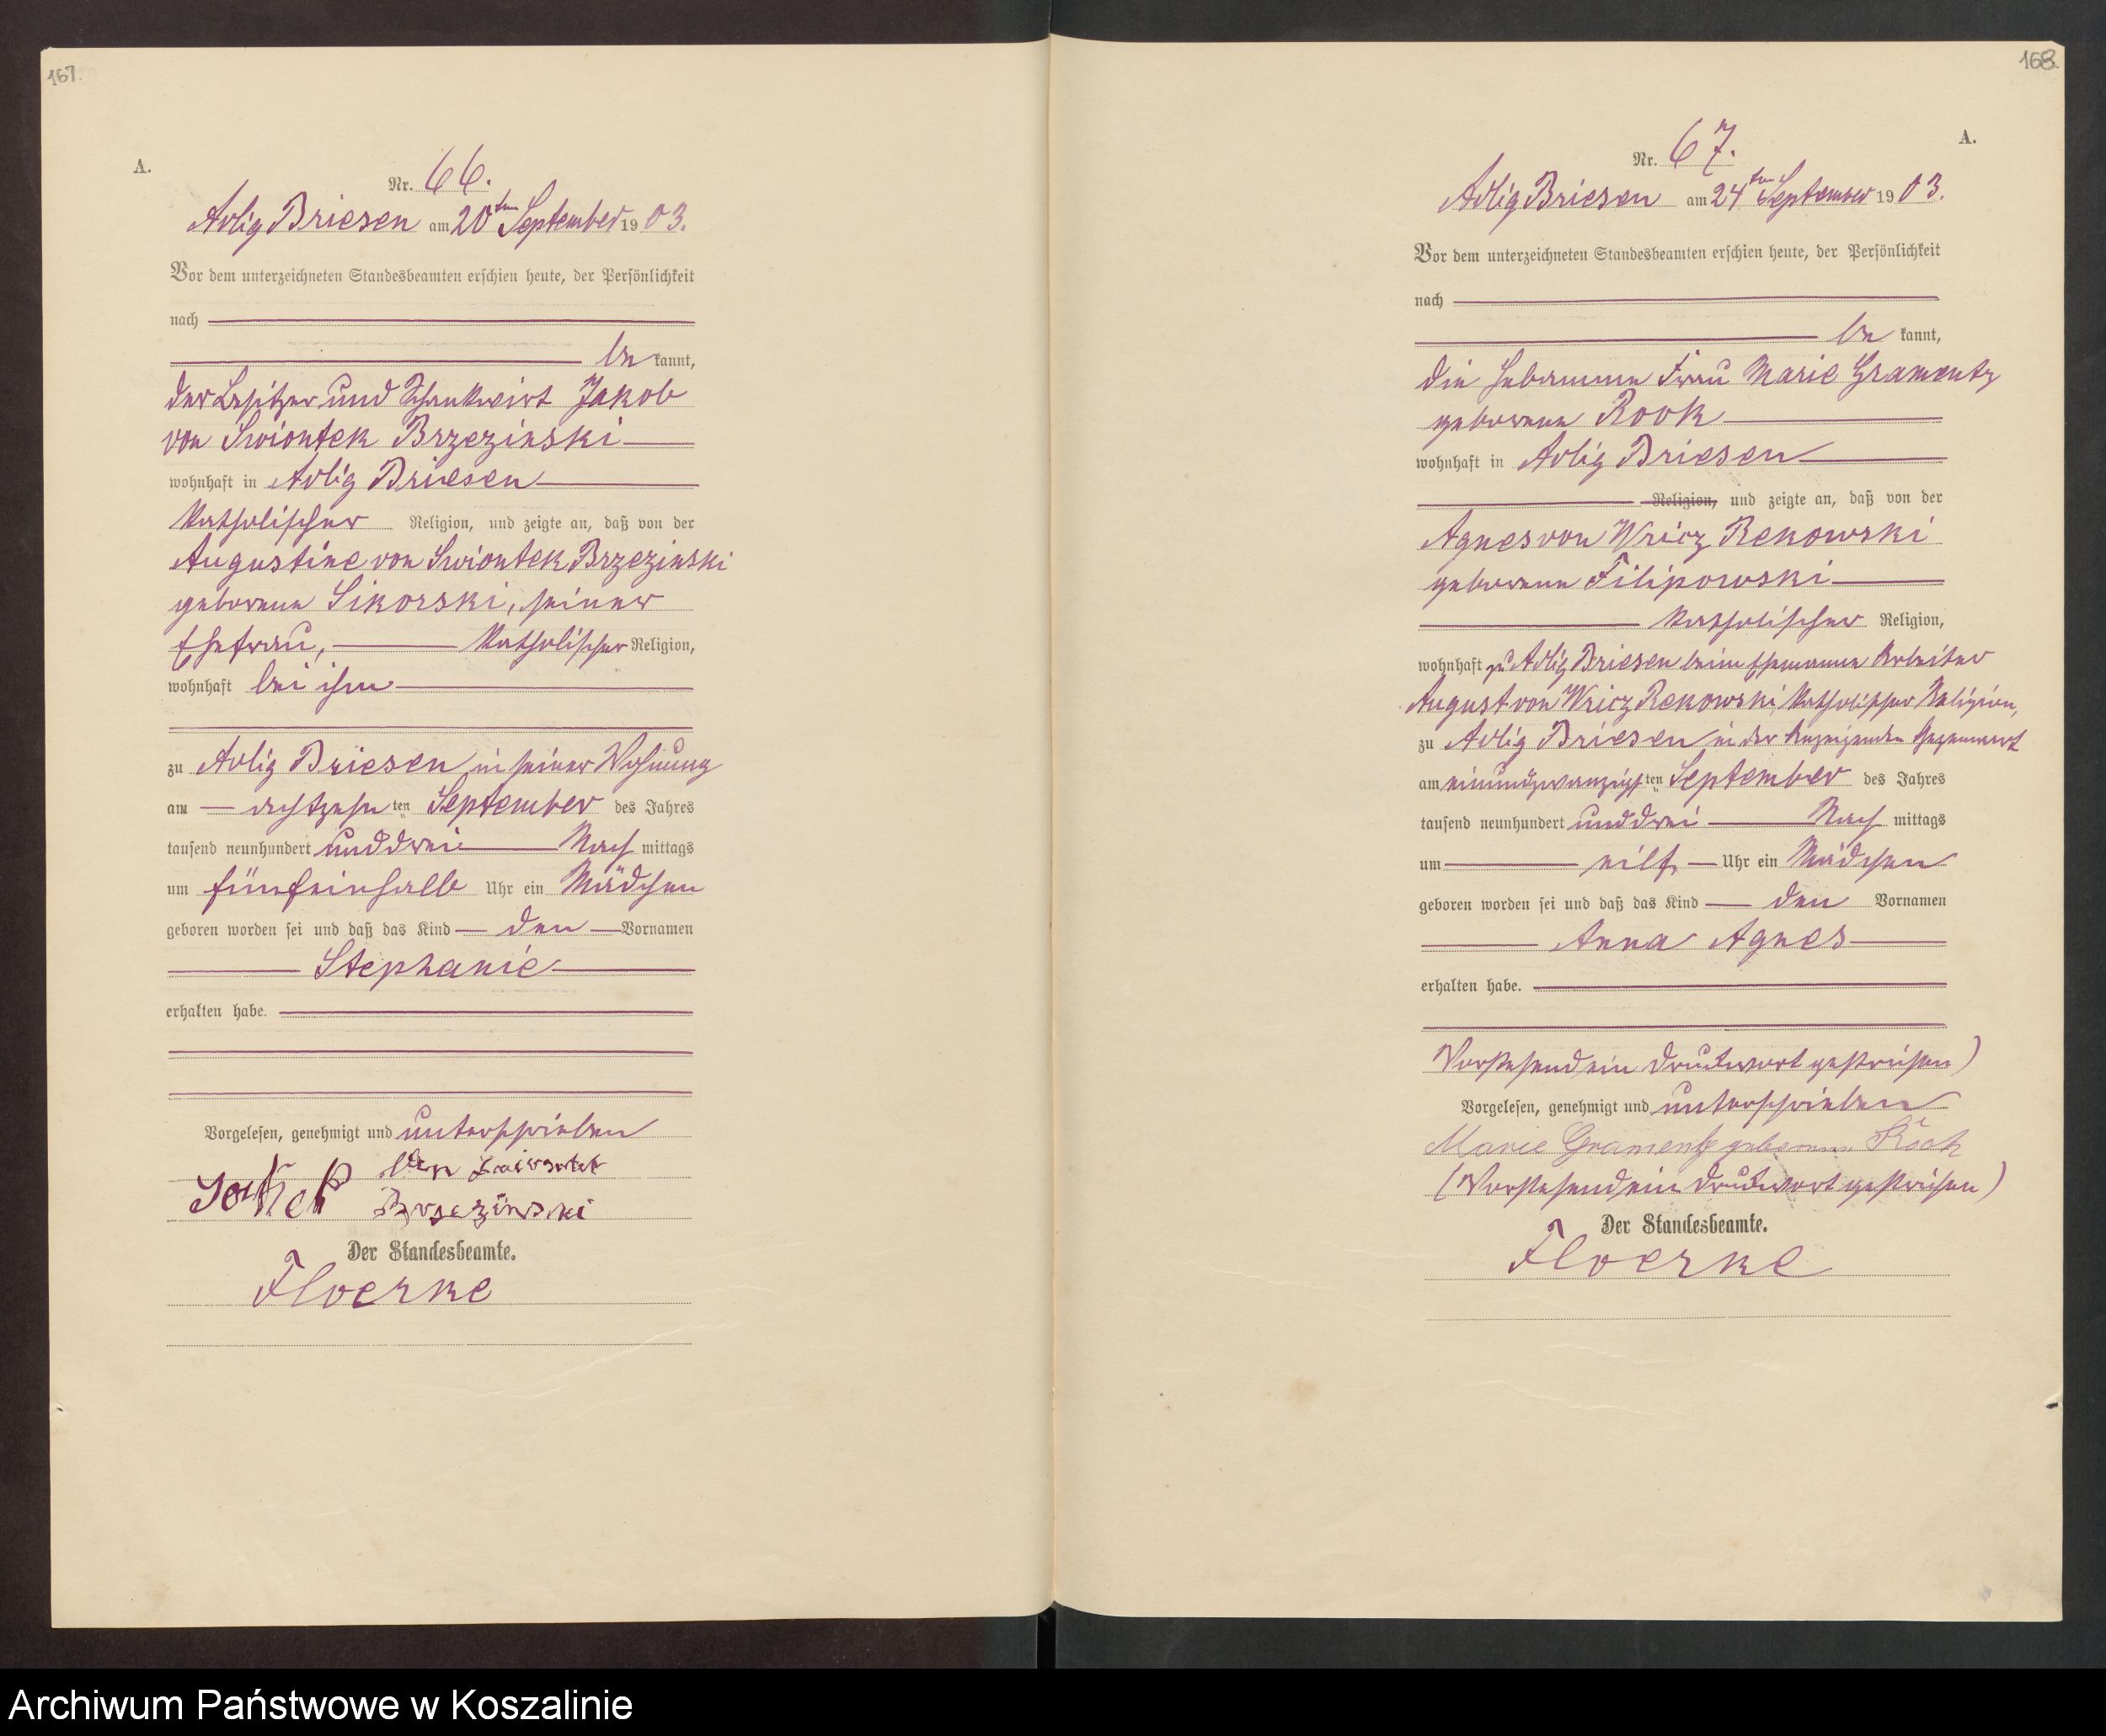 167.
A.
Nr. 66.
Adlig Briesen am 20ten September 1903.
Vor dem unterzeichneten Standesbeamten erschien heute, der Persönlichkeit
nach
be kannt,
der Besitzer und Schankwirt Jakob
von Swiontek Brzezinski
wohnhaft in Adlig Briesen
katholischer Religion, und zeigte an, daß von der
Augustine von Swiontek Brzezinski
geborene Sikorski, seiner
Ehefrau, katholischer Religion,
wohnhaft bei ihm
zu Adlig Briesen in seiner Wohnung
am achtzehn ten September des Jahres
tausend neunhundert und drei Nach mittags
um fünfeinhalb Uhr ein Mädchen
geboren worden sei und daß das Kind den Vornamen
Stephanie
erhalten habe.
Vorgelesen, genehmigt und unterschrieben
von
Brzezinski
Der Standesbeamte.
Floerke
168.
A.
Nr. 67.
Adlig Briesen am 24ten September 1903.
Vor dem unterzeichneten Standesbeamten erschien heute, der Persönlichkeit
nach
be kannt,
die Hebamme Frau Marie Gramentz
geborene Rook
wohnhaft in Adlig Briesen
Religion, und zeigte an, daß von der
Agnes von Wricz Rekowski
geborene Filipowski
katholischer Religion,
wohnhaft zu Adlig Briesen beim Ehemanne Arbeiter
August von Wricz Rekowski, katholischer Religion,
zu Adlig Briesen in der Anzeigenden Gegenwart
am einundzwanzigsten September des Jahres
tausend neunhundert und drei Nach mittags
um eilf Uhr ein Mädchen
geboren worden sei und daß das Kind den Vornamen
Anna Agnes
erhalten habe.
Vorstehend ein Druckwort gestrichen)
Vorgelesen, genehmigt und unterschrieben
Marie Gramentz geborene
(Vorstehend ein Druckwort gestrichen)
Der Standesbeamte.
Floerke
Archiwum Państwowe w Koszalinie